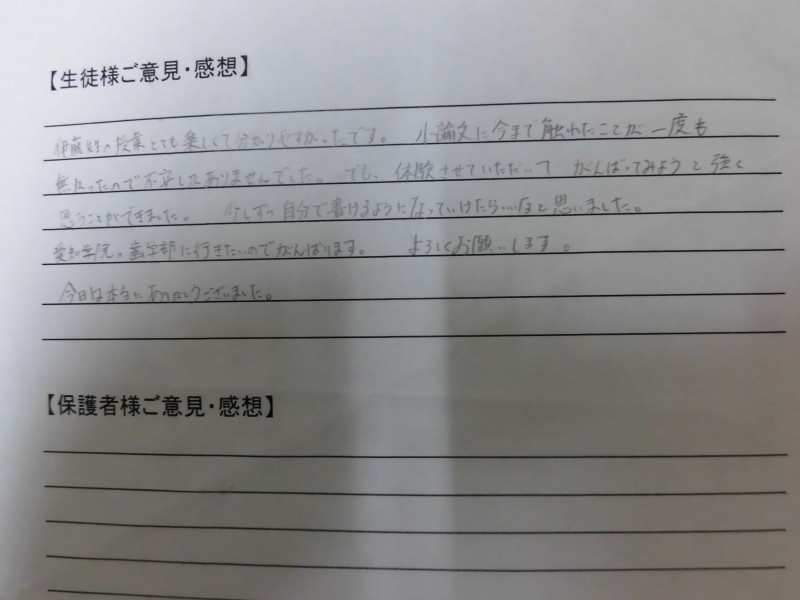 【生徒様ご意見・感想】
伊藤先生の授業とても楽しくて分かりやすかったです。 小論文に今まで触れたことが一度も
無かったので不安しかありませんでした。でも、体験させていただいて がんばってみようと強く
思うことができました。 少しずつ自分で書けるようになっていけたらいいなと思いました。
愛知学院の歯学部に行きたいのでがんばります。 よろしくお願いします。
今日は本当にありがとうございました。
【保護者様ご意見・感想】